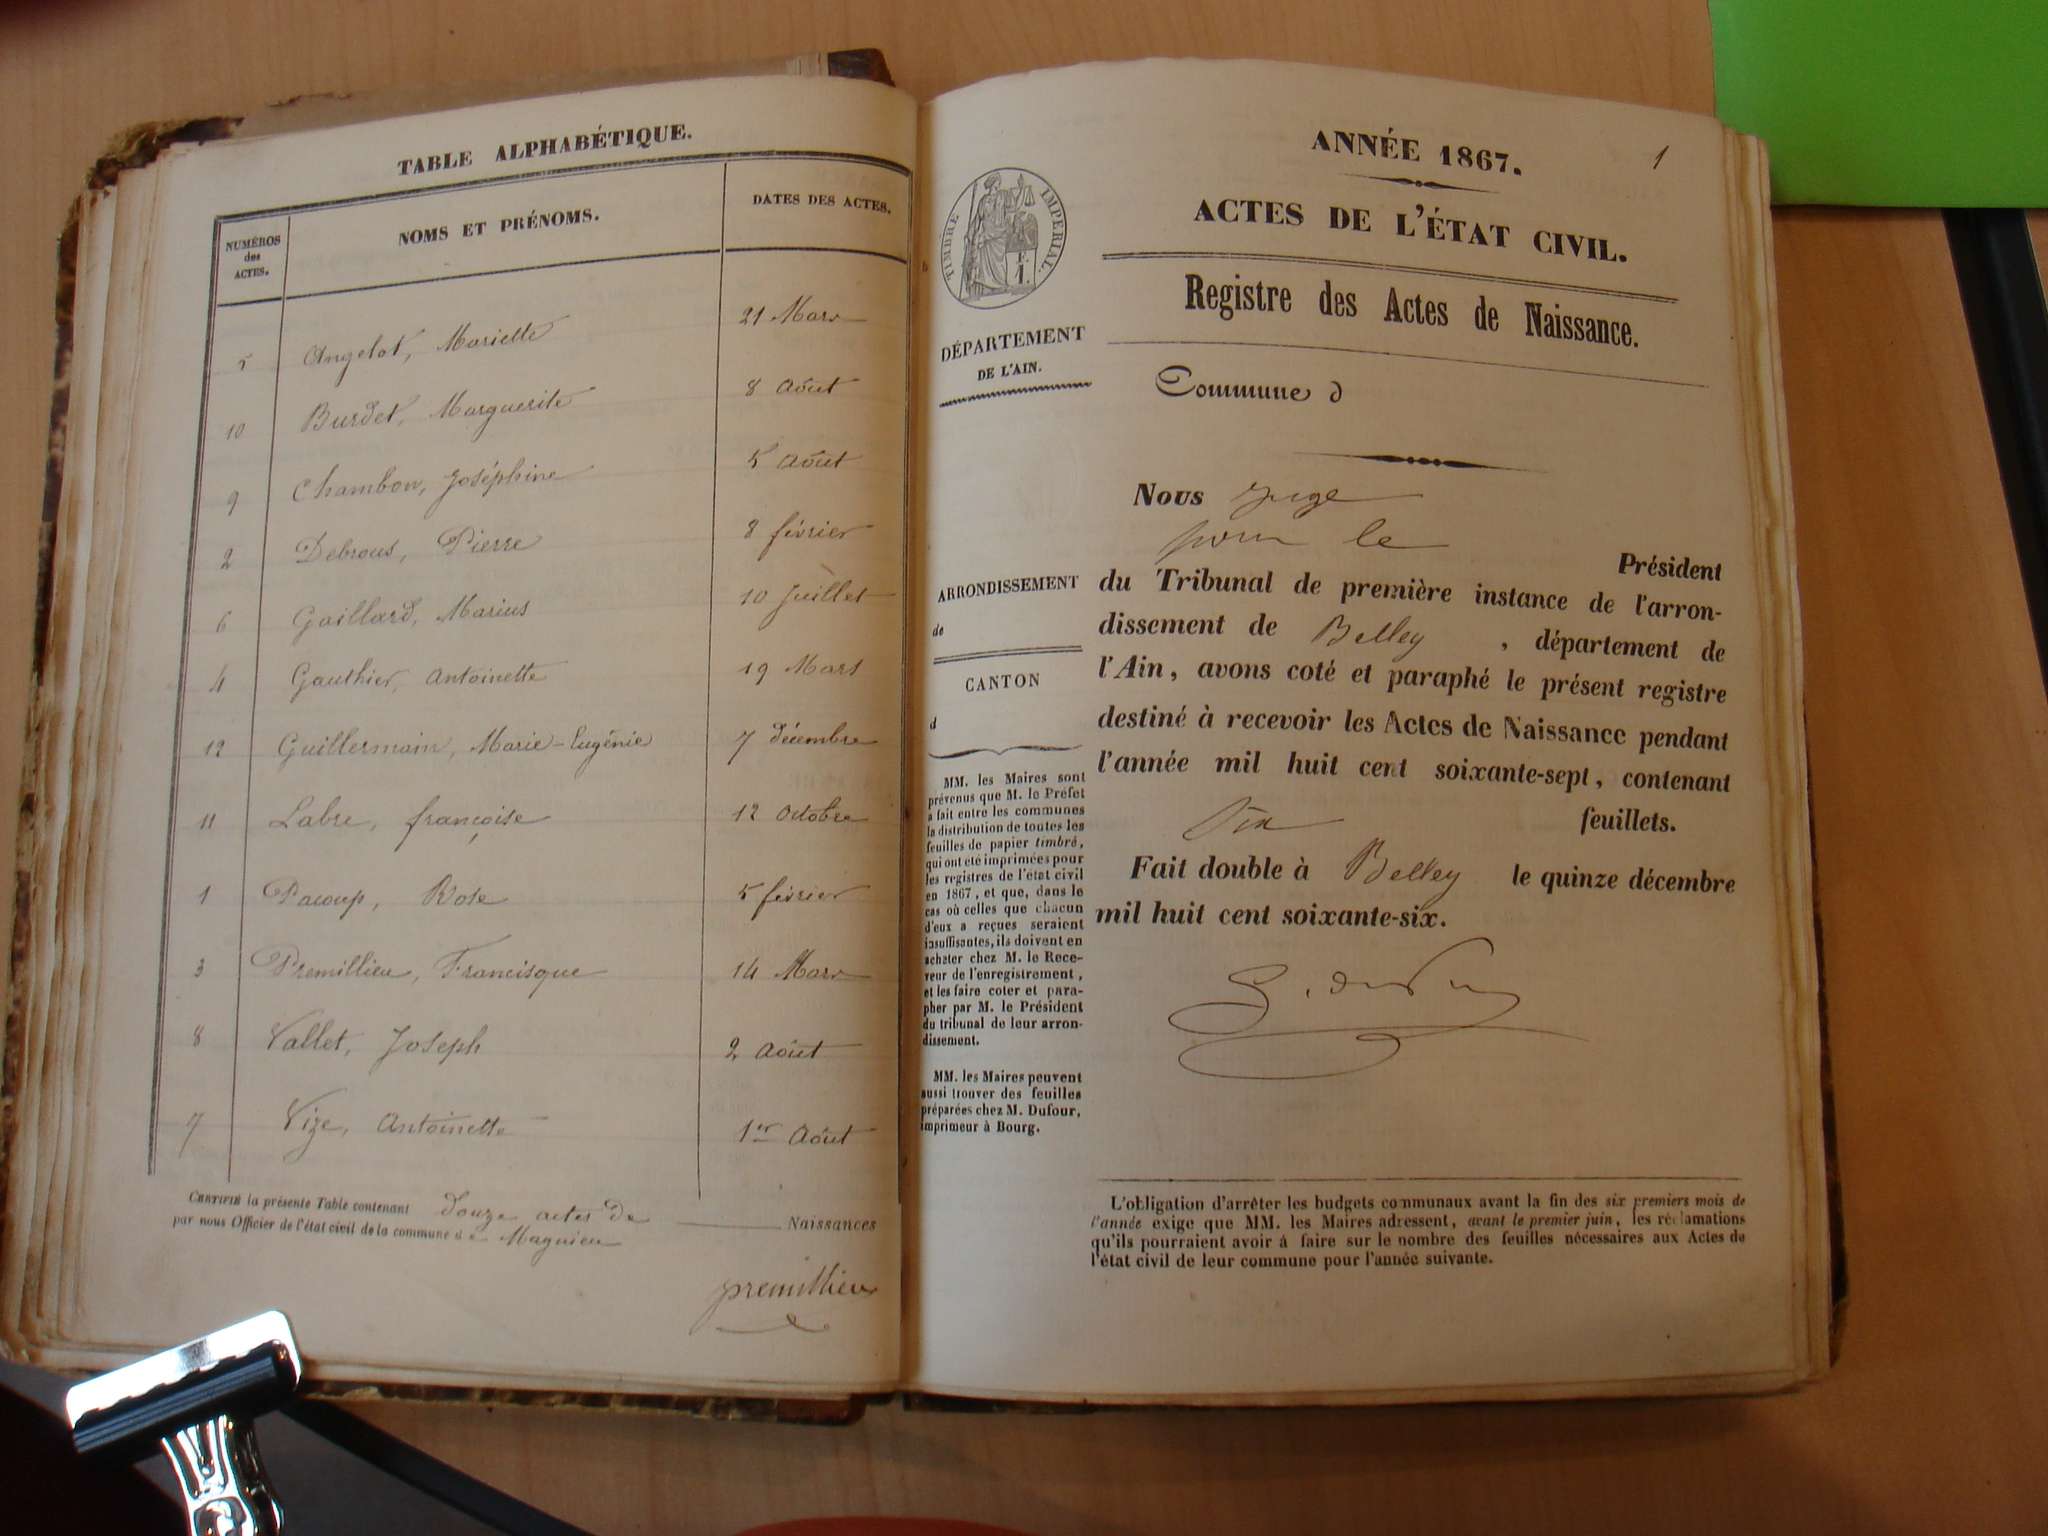 TABLE ALPHABÉTIQUE.
NUMÉROS des ACTES. NOMS ET PRÉNOMS. DATES DES ACTES.
5 Angelot, Mariette 21 Mars
10 Burdet, Marguerite 8 Août
9 Chambon, Joséphine 5 Août
2 Debrous, Pierre 8 février
6 Gaillard, Marius 10 Juillet
4 Gauthier, Antoinette 19 Mars
12 Guillermain, Marie-Eugénie 7 décembre
11 Labre, françoise 12 Octobre
1 Pacoup, Rose 5 février
3 Premillieu, Francisque 14 Mars
8 Vallet, Joseph 2 Août
7 Vize, Antoinette 1er Août
CERTIFIÉ la présente Table contenant douze actes de Naissances
par nous Officier de l'état civil de la commune de Magnieu
premillieu
1
ANNÉE 1867.
ACTES DE L'ÉTAT CIVIL.
Registre des Actes de Naissance.
TIMBRE IMPÉRIAL.
DÉPARTEMENT
DE L'AIN.
ARRONDISSEMENT
de
CANTON
d
MM. les Maires sont
prévenus que M. le Préfet
a fait entre les communes
la distribution de toutes les
feuilles de papier timbré,
qui ont été imprimées pour
les registres de l'état civil
en 1867, et que, dans le
cas où celles que chacun
d'eux a reçues seraient
insuffisantes, ils doivent en
acheter chez M. le Rece-
veur de l'enregistrement,
et les faire coter et para-
pher par M. le Président
du tribunal de leur arron-
dissement.
MM. les Maires peuvent
aussi trouver des feuilles
préparées chez M. Dufour,
imprimeur à Bourg.
Commune d
Nous juge
pour le
Président
du Tribunal de première instance de l'arron-
dissement de Belley, département de
l'Ain, avons coté et paraphé le présent registre
destiné à recevoir les Actes de Naissance pendant
l'année mil huit cent soixante-sept, contenant
six feuillets.
Fait double à Belley le quinze décembre
mil huit cent soixante-six.
L'obligation d'arrêter les budgets communaux avant la fin des six premiers mois de
l'année exige que MM. les Maires adressent, avant le premier juin, les réclamations
qu'ils pourraient avoir à faire sur le nombre des feuilles nécessaires aux Actes de
l'état civil de leur commune pour l'année suivante.